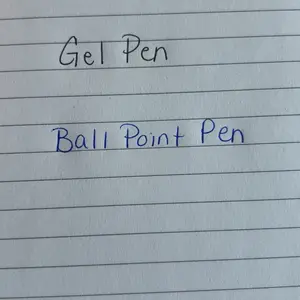 Gel Pen
Ball Point Pen